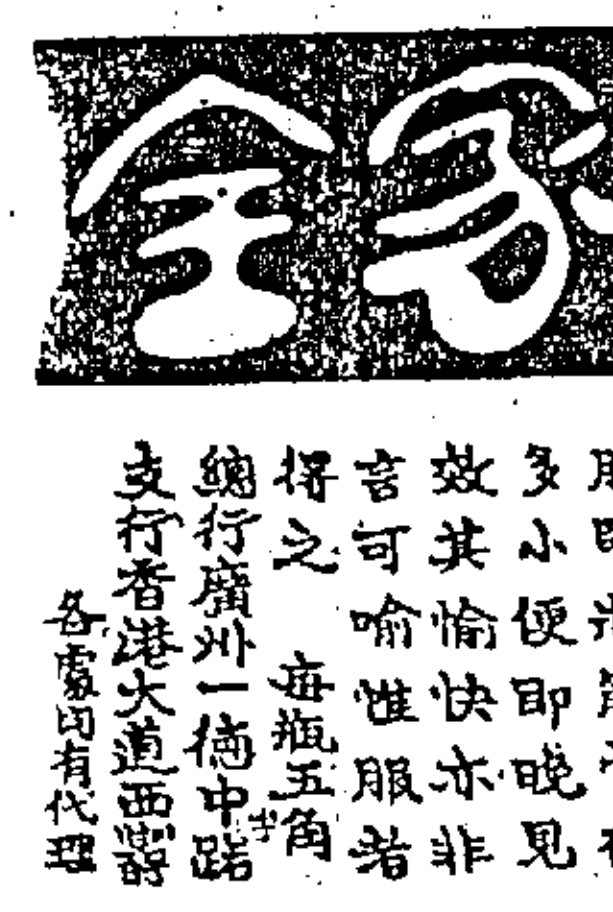 全
多小便即晚見
效其愉快亦非
言可喻惟服者
得之 每瓶五角
總行廣州一德中路
支行香港大道西
各處均有代理